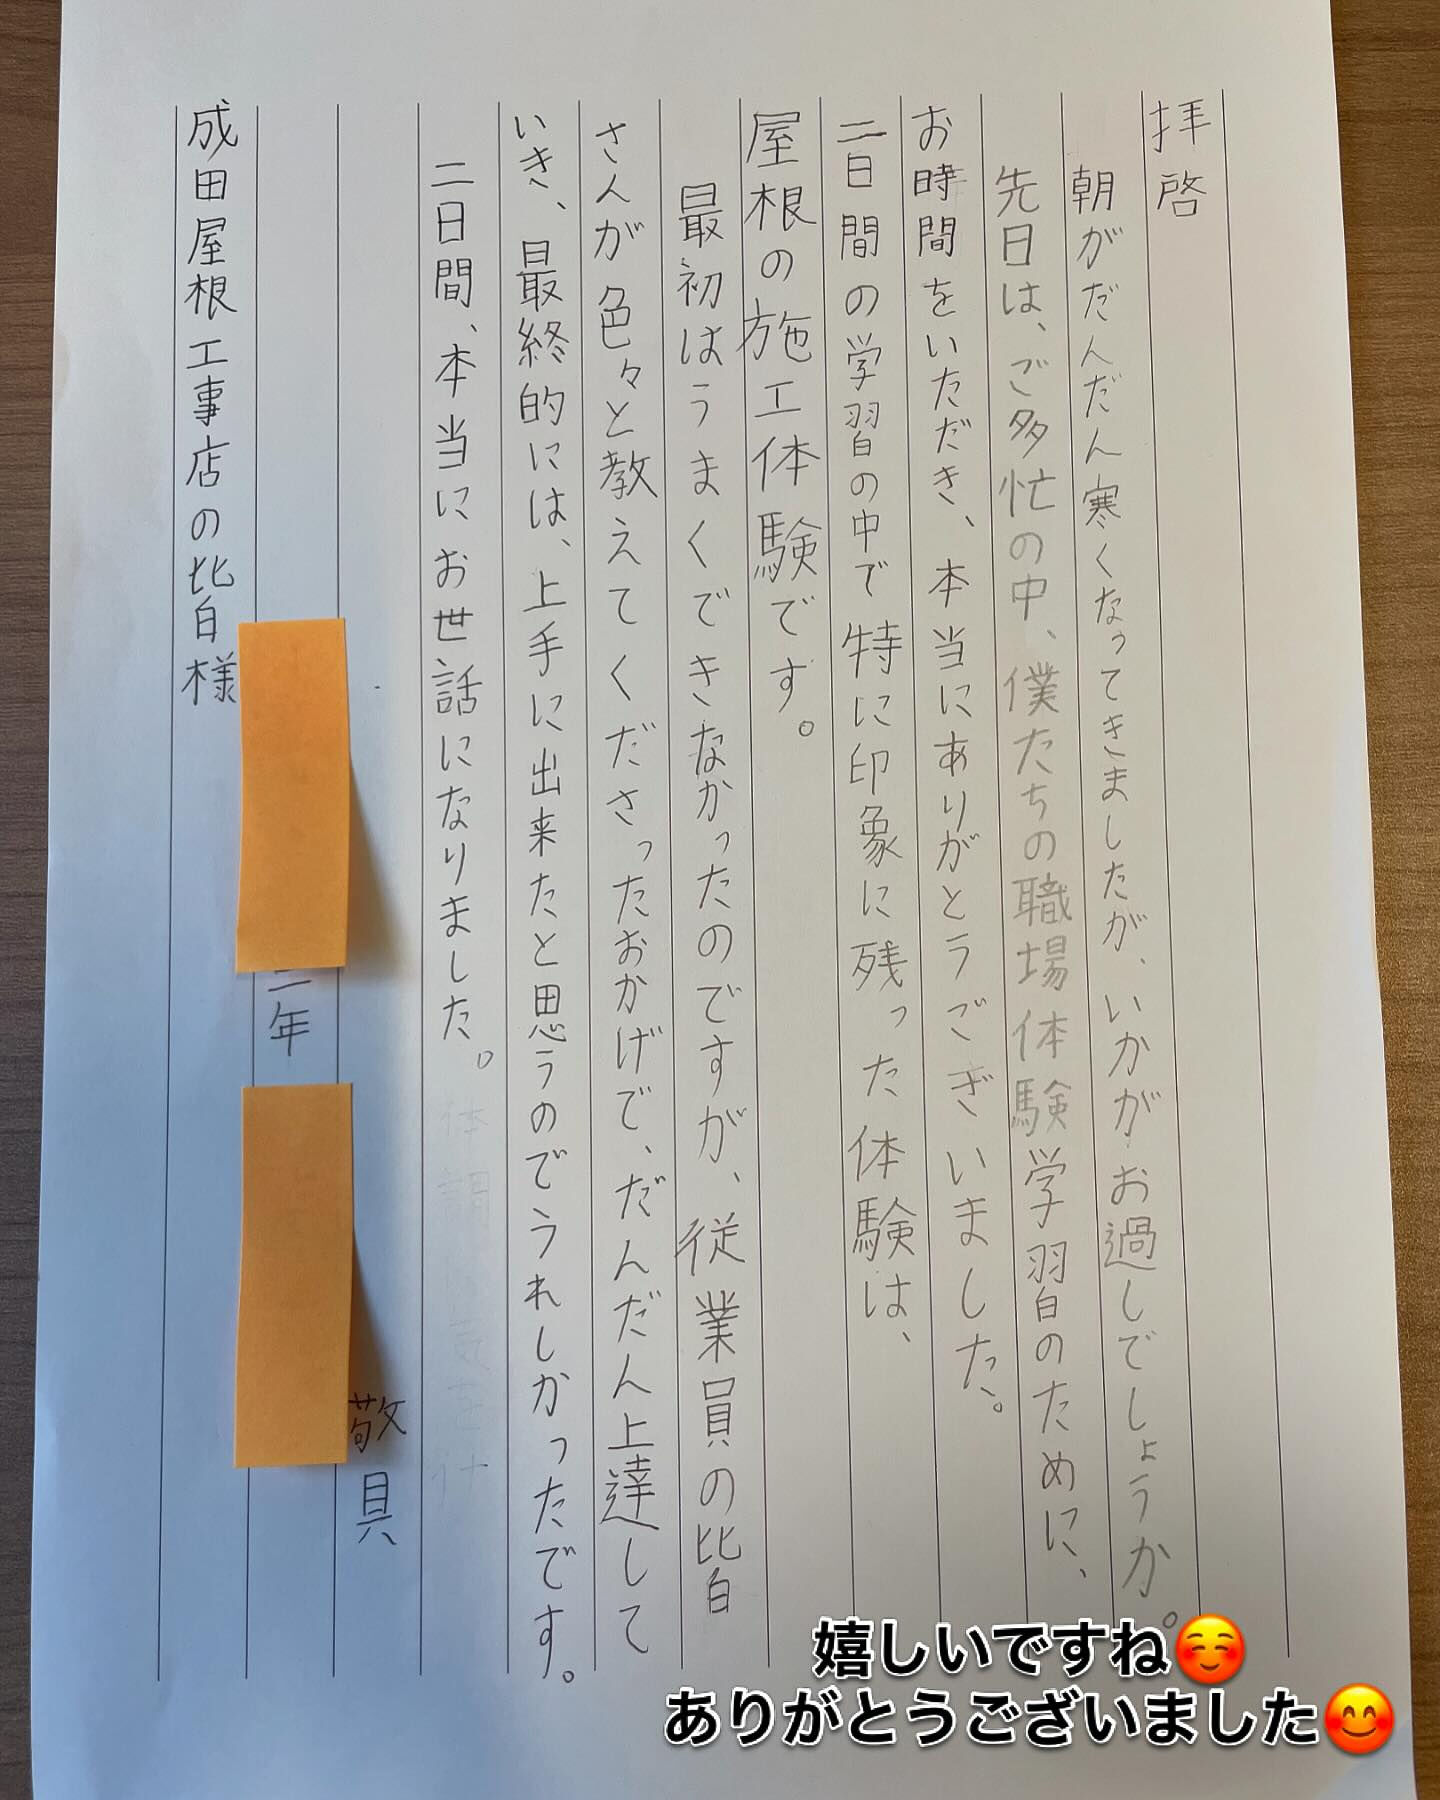 拝啓
朝がだんだん寒くなってきましたが、いかがお過しでしょうか。
先日は、ご多忙の中、僕たちの職場体験学習のために、
お時間をいただき、本当にありがとうございました。
二日間の学習の中で特に印象に残った体験は、
屋根の施工体験です。
最初はうまくできなかったのですが、従業員の皆
さんが色々と教えてくださったおかげで、だんだん上達して
いき、最終的には、上手に出来たと思うのでうれしかったです。
二日間、本当にお世話になりました。
敬具
二年
成田屋根工事店の皆様
嬉しいですね☺️
ありがとうございました😊